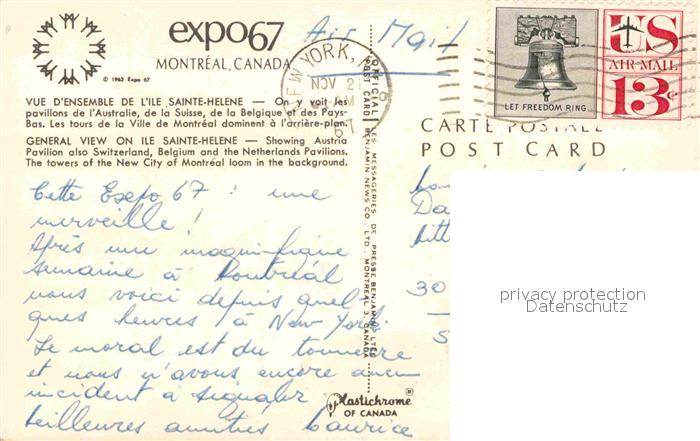 expo67
Air Mail
MONTRÉAL, CANADA
© 1963 Expo 67
NEW YORK, N.Y.
NOV 2
PM
67
LET FREEDOM RING
US
AIR MAIL
13¢
VUE D'ENSEMBLE DE L'ILE SAINTE-HELENE — On y voit les
pavillons de l'Australie, de la Suisse, de la Belgique et des Pays-
Bas. Les tours de la Ville de Montréal dominent à l'arrière-plan.
GENERAL VIEW ON ILE SAINTE-HELENE — Showing Austria
Pavilion also Switzerland, Belgium and the Netherlands Pavilions.
The towers of the New City of Montréal loom in the background.
CARTE POSTALE
POST CARD
OFFICIAL POST CARD BENJAMIN NEWS CO. LTD. MONTREAL 3, CANADA
LES MESSAGERIES DE PRESSE BENJAMIN LTÉE
Cette Expo 67 : une
merveille !
Après une magnifique
semaine à Montréal
nous voici depuis quel
ques heures à New York.
Le moral est du tonnerre
et nous n'avons encore aucun
incident à signaler
Meilleures amitiés Maurice
30
S
privacy protection
Datenschutz
Plastichrome®
OF CANADA